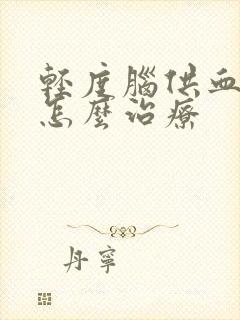 輕度腦供血
怎麼治療
丹寧